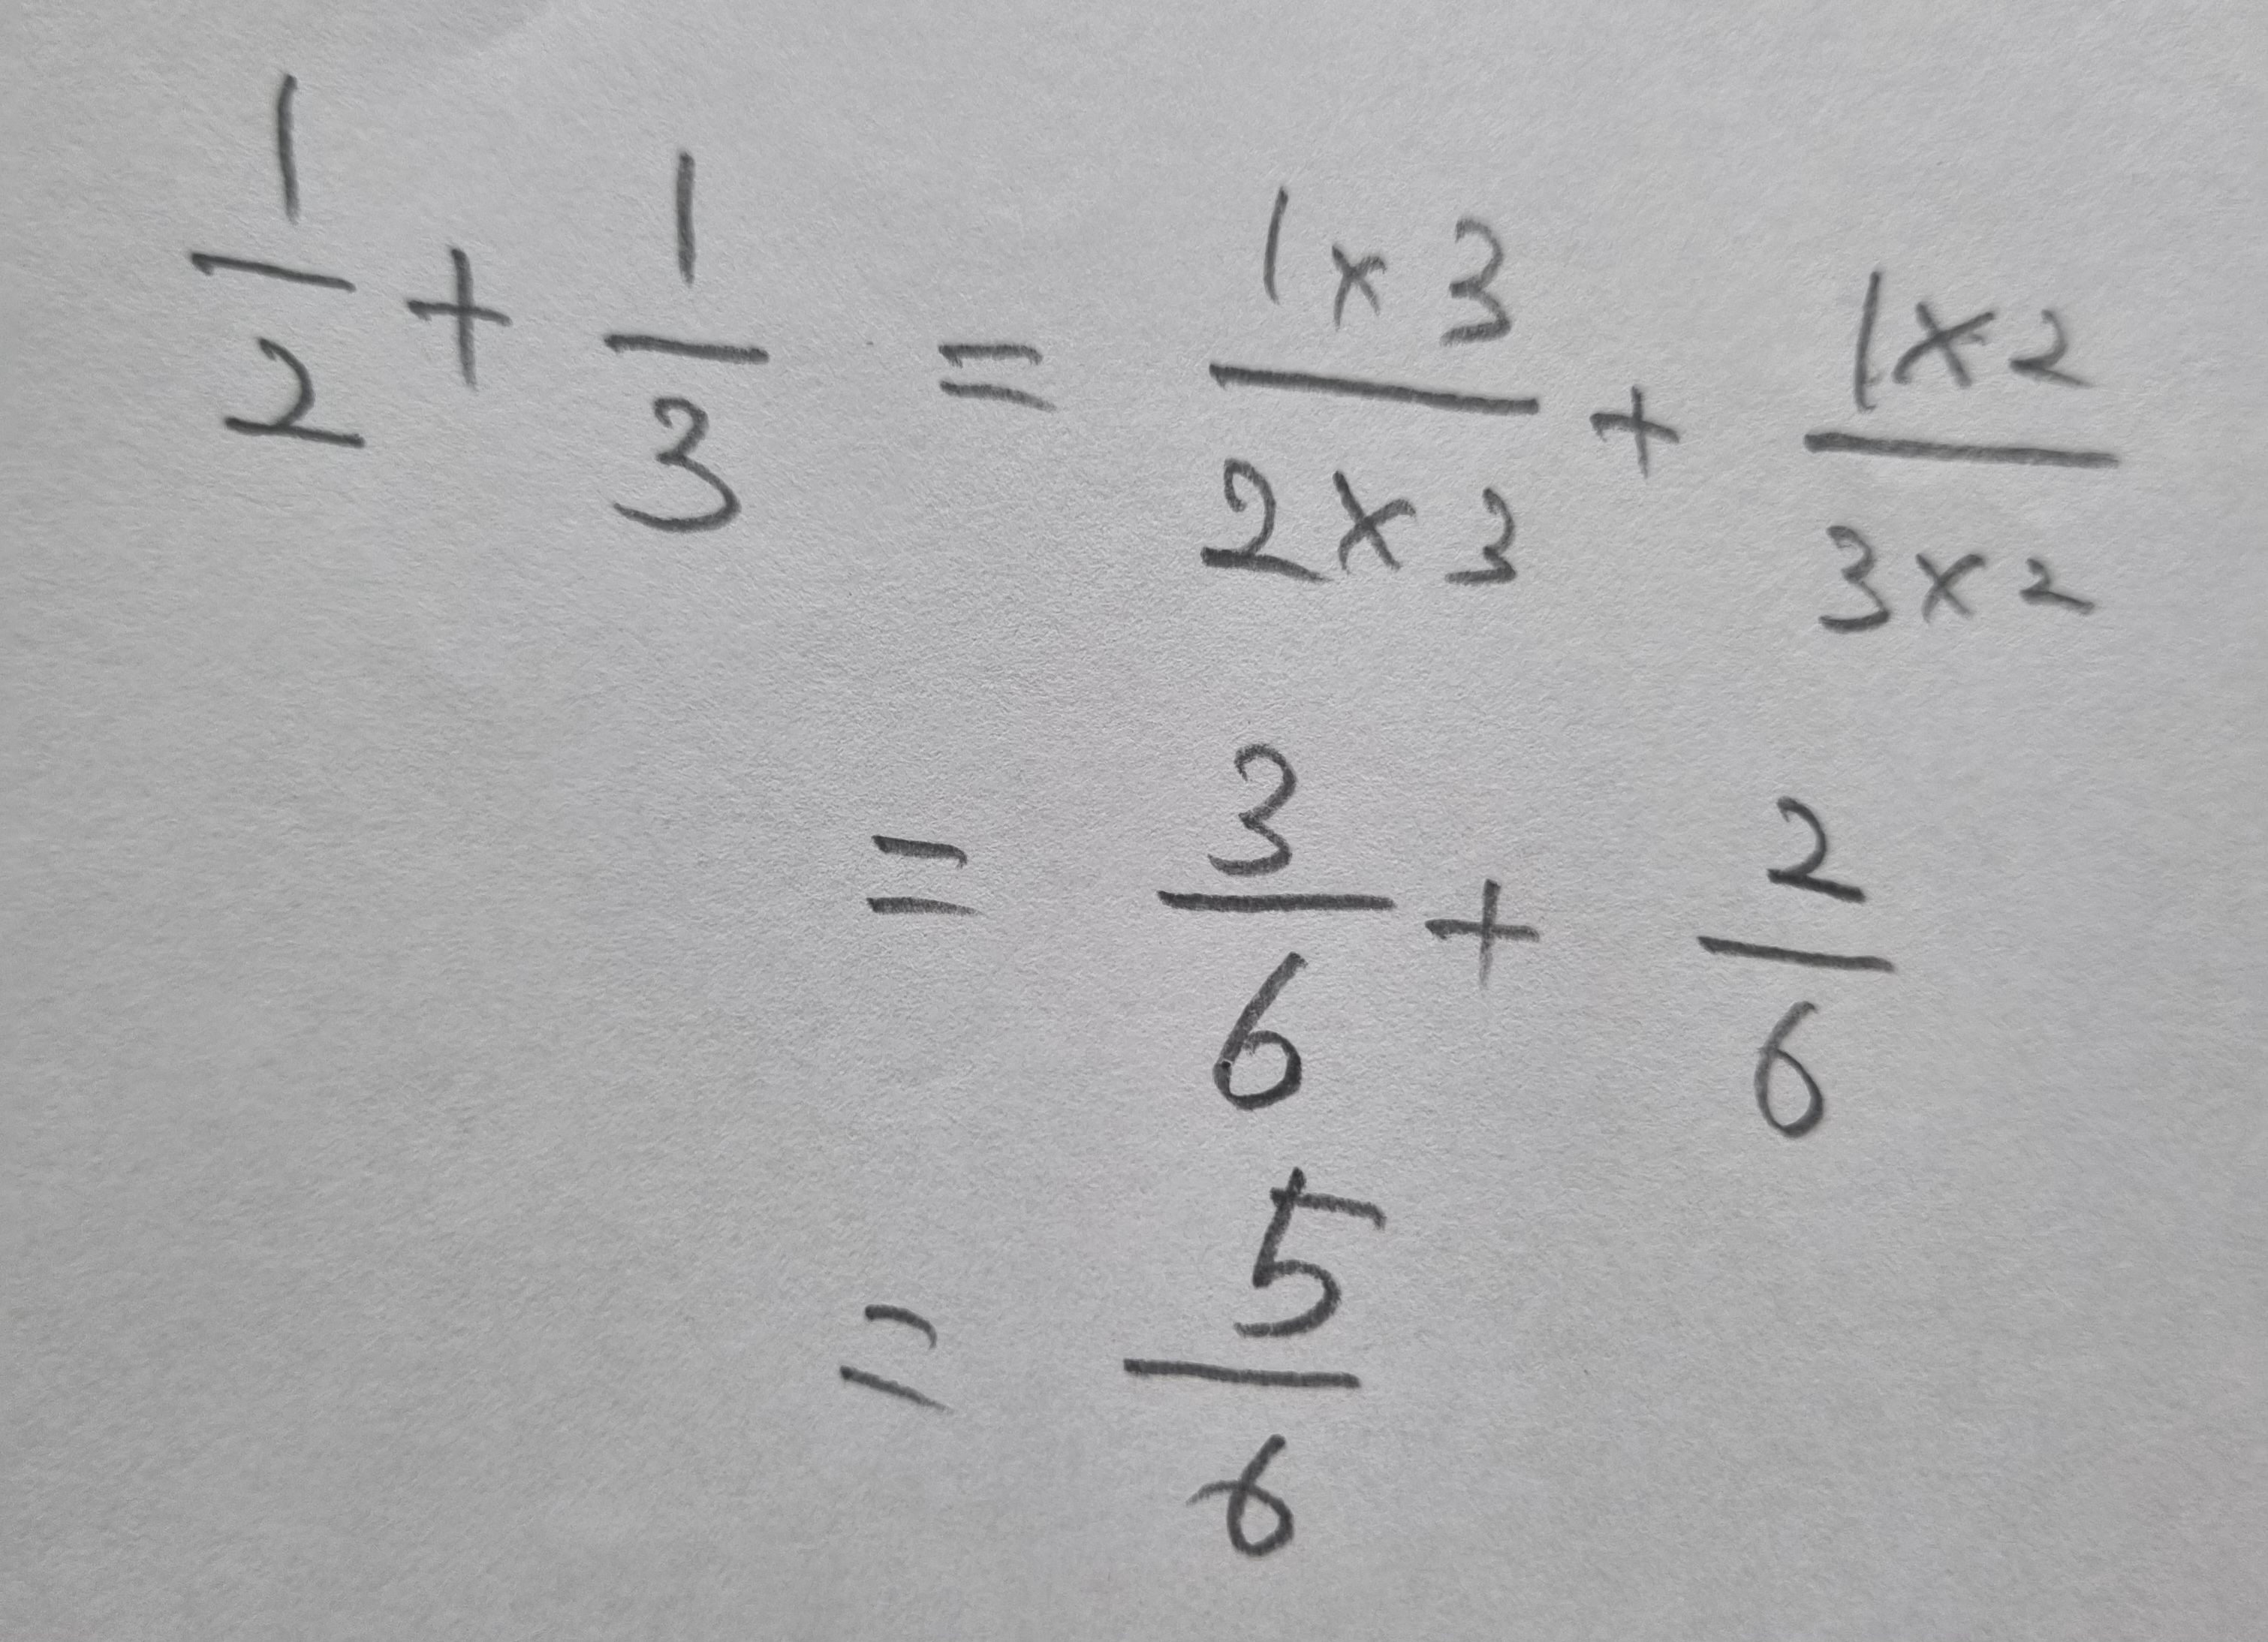 1/2 + 1/3 = (1×3)/(2×3) + (1×2)/(3×2)
= 3/6 + 2/6
= 5/6